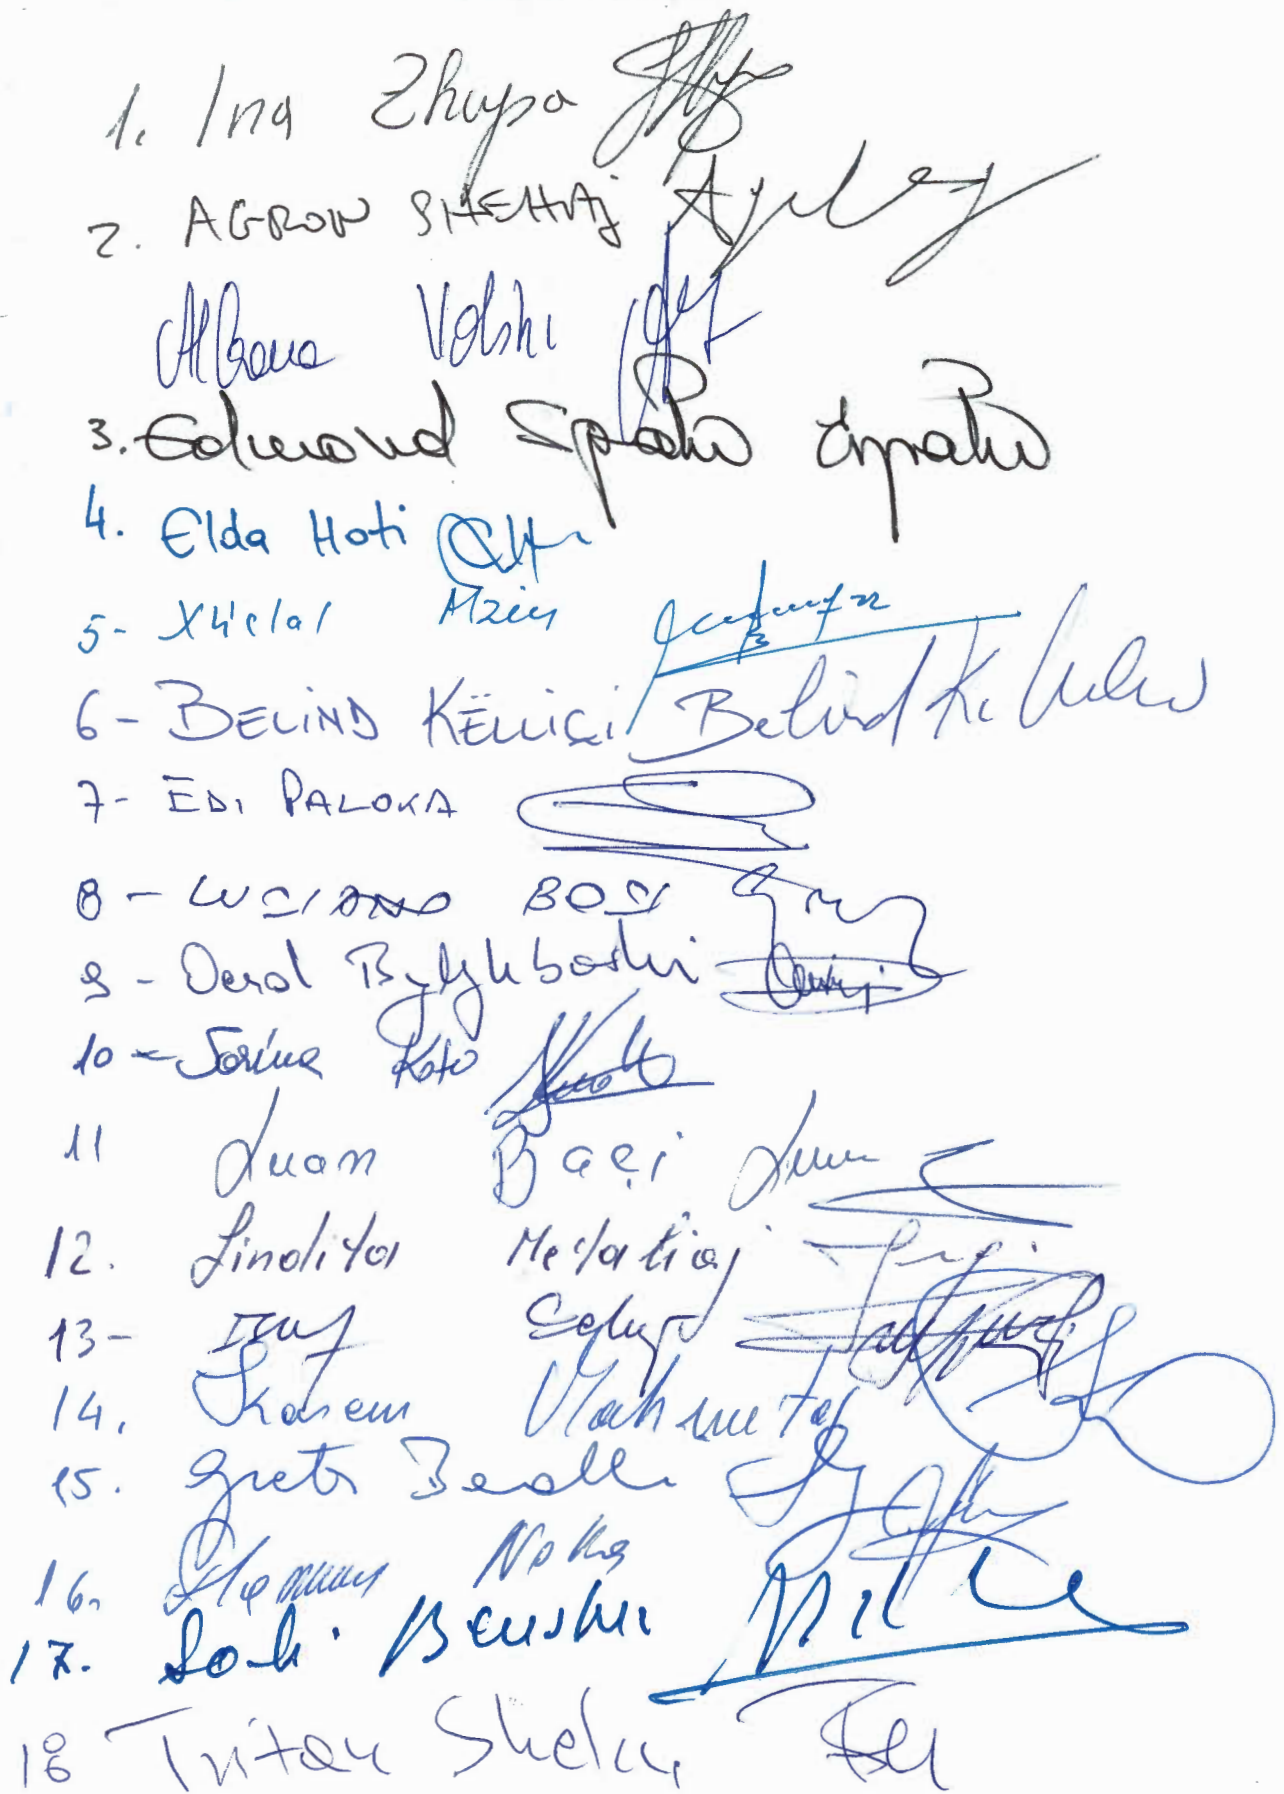 1. Ina Zhupa
2. AGRON SHEHAJ
Albana Vokshi
3. Edmond Spaho Espaho
4. Elda Hoti
5- Xhelal Mziu
6- BELIND KËLLIÇI Belind K.
7- EDI PALOKA
8- LUCIANO BOÇI
9- Oerd Bylykbashi
10- Jorina Koto
11 Luan Baçi
12. Lindita Metaliaj
13- Isuf Çelaj
14. Kasem Mahmutaj
15. Greta Bardeli
16. Flamur Noka
17. Sali Berisha
18 Tritan Shehu